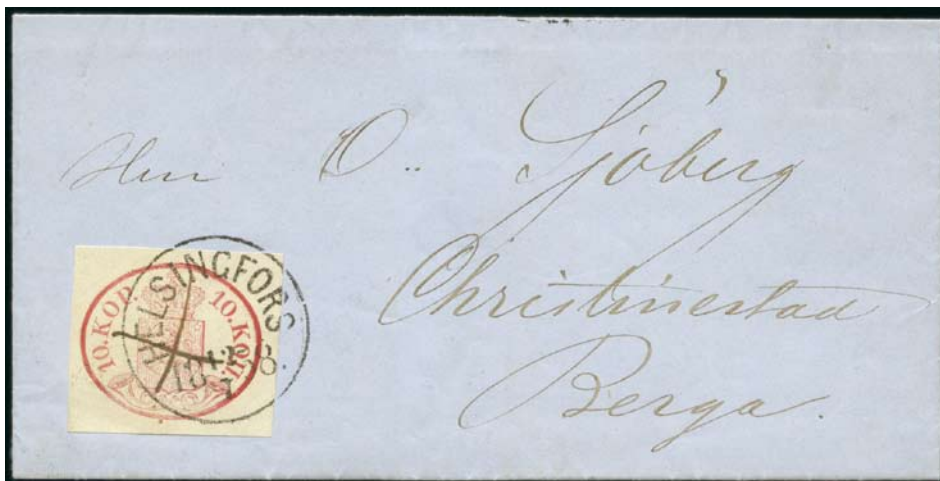 Herr O. Sjöberg
Christinestad
Berga.
10. KOP. 10. КОП.
HELSINGFORS
1858.
7